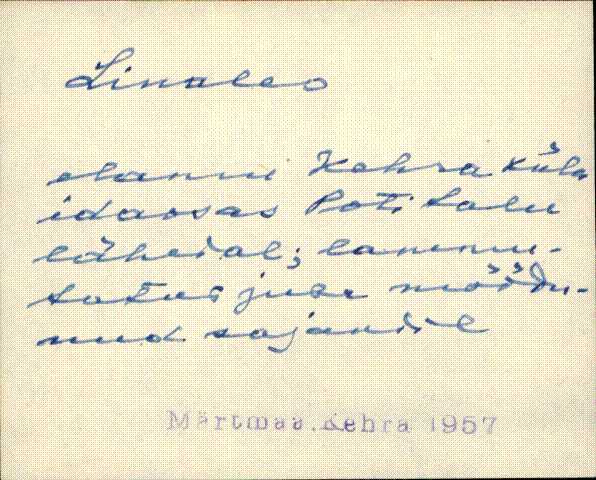 Linaleo
elanu Kehra küla
idaosas Poti talu
lähedal; lammu-
tatud juba möödu-
nud sajandil
Märtmaa.Kehra 1957